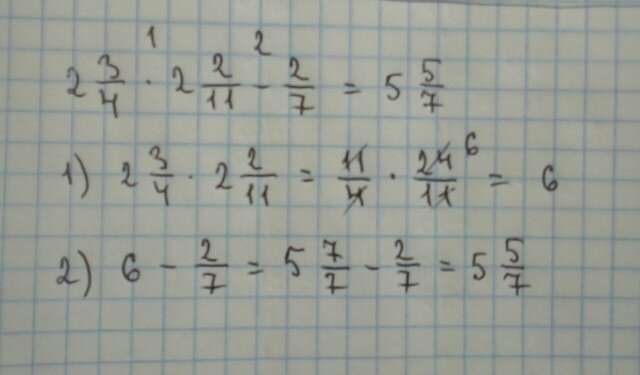 2 3/4 · 2 2/11 - 2/7 = 5 5/7
1) 2 3/4 · 2 2/11 = 11/4 · 24/11 6 = 6
2) 6 - 2/7 = 5 7/7 - 2/7 = 5 5/7